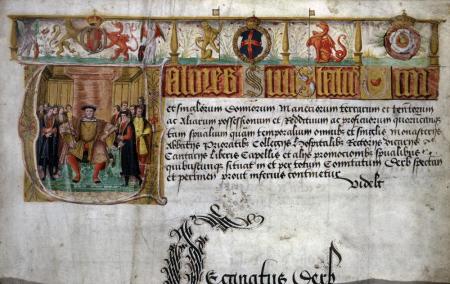 et singulorum Dominiorum Maneriorum terrarum et
ac Aliarum possessionum et Reddituum ac proficuorum quorumcunque
tam spualium quam temporalium omnibus et singulis monasterijs
Abbathijs Prioratibus Collegijs Hospitalibus Rectorijs Vicarijs
Cantarijs Liberis Capellis et alijs promocionibus spualibus
quibuscunque situat in et per totum Comitatum Derb spectan
et pertinen prout inferius continetur
Videlt
Decanatus Derb